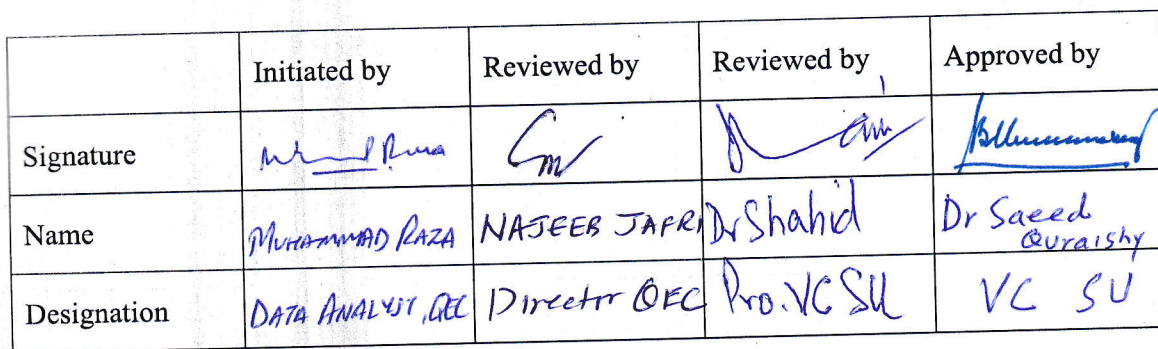 Initiated by Reviewed by Reviewed by Approved by
Signature
Name MUHAMMAD RAZA NAJEEB JAFRI Dr Shahid Dr Saeed
Quraishy
Designation DATA ANALYST, QEC Director QEC Pro. VC SU VC SU